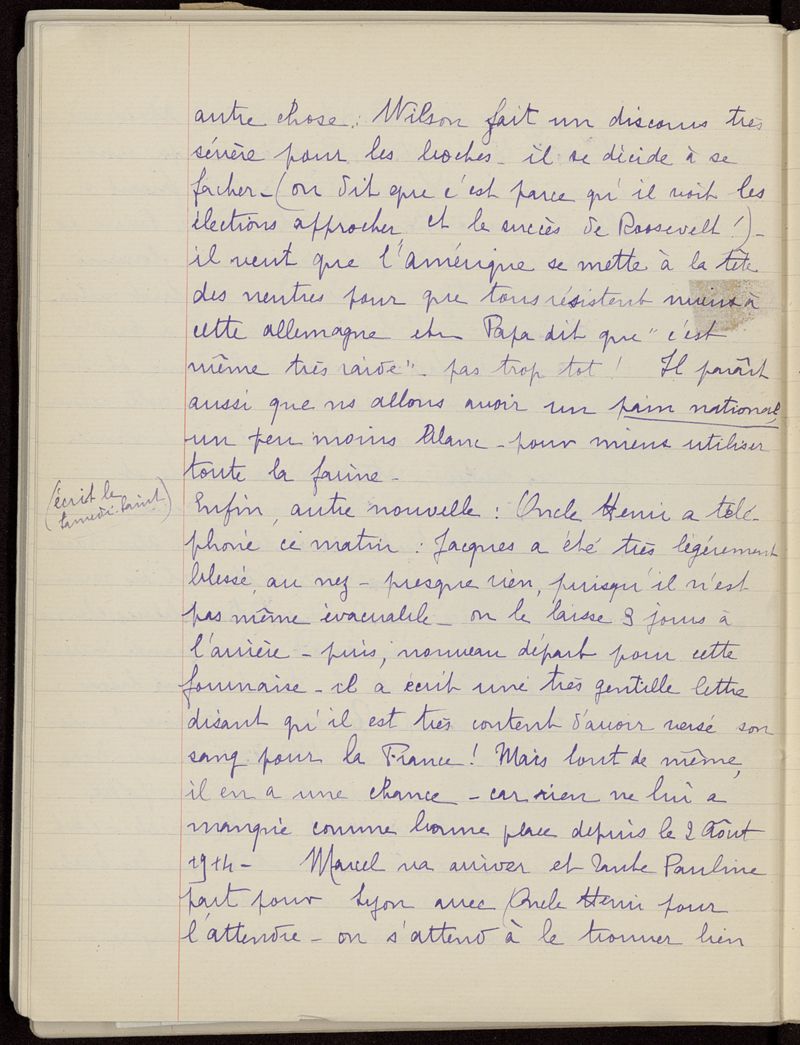 autre chose. Wilson fait un discours très
sévère pour les boches – il se décide à se
facher – (on dit que c'est parce qu'il voit les
élections approcher, et le succès de Roosevelt !) –
il veut que l'Amérique se mette à la tête
des neutres pour que tous résistent mieux à
cette allemagne etc. Papa dit que "c'est
même très raide" – pas trop tot ! Il parâit
aussi que ns allons avoir un pain national,
un peu moins blanc – pour mieux utiliser
toute la farine –
(écrit le
samedi-saint)
Enfin, autre nouvelle : Oncle Henri a télé-
phoné ce matin : Jacques a été très légérement
blessé, au nez – presque rien, puisqu'il n'est
pas même évacuable – on le laisse 3 jours à
l'arrière – puis, nouveau départ pour cette
fournaise – il a écrit une très gentille lettre
disant qu'il est très content d'avoir versé son
sang pour la France ! Mais tout de même,
il en a une chance – car rien ne lui a
manqué comme bonne place depuis le 2 Août
1914 – Marcel va arriver et Tante Pauline
part pour Lyon avec Oncle Henri pour
l'attendre – on s'attend à le trouver bien